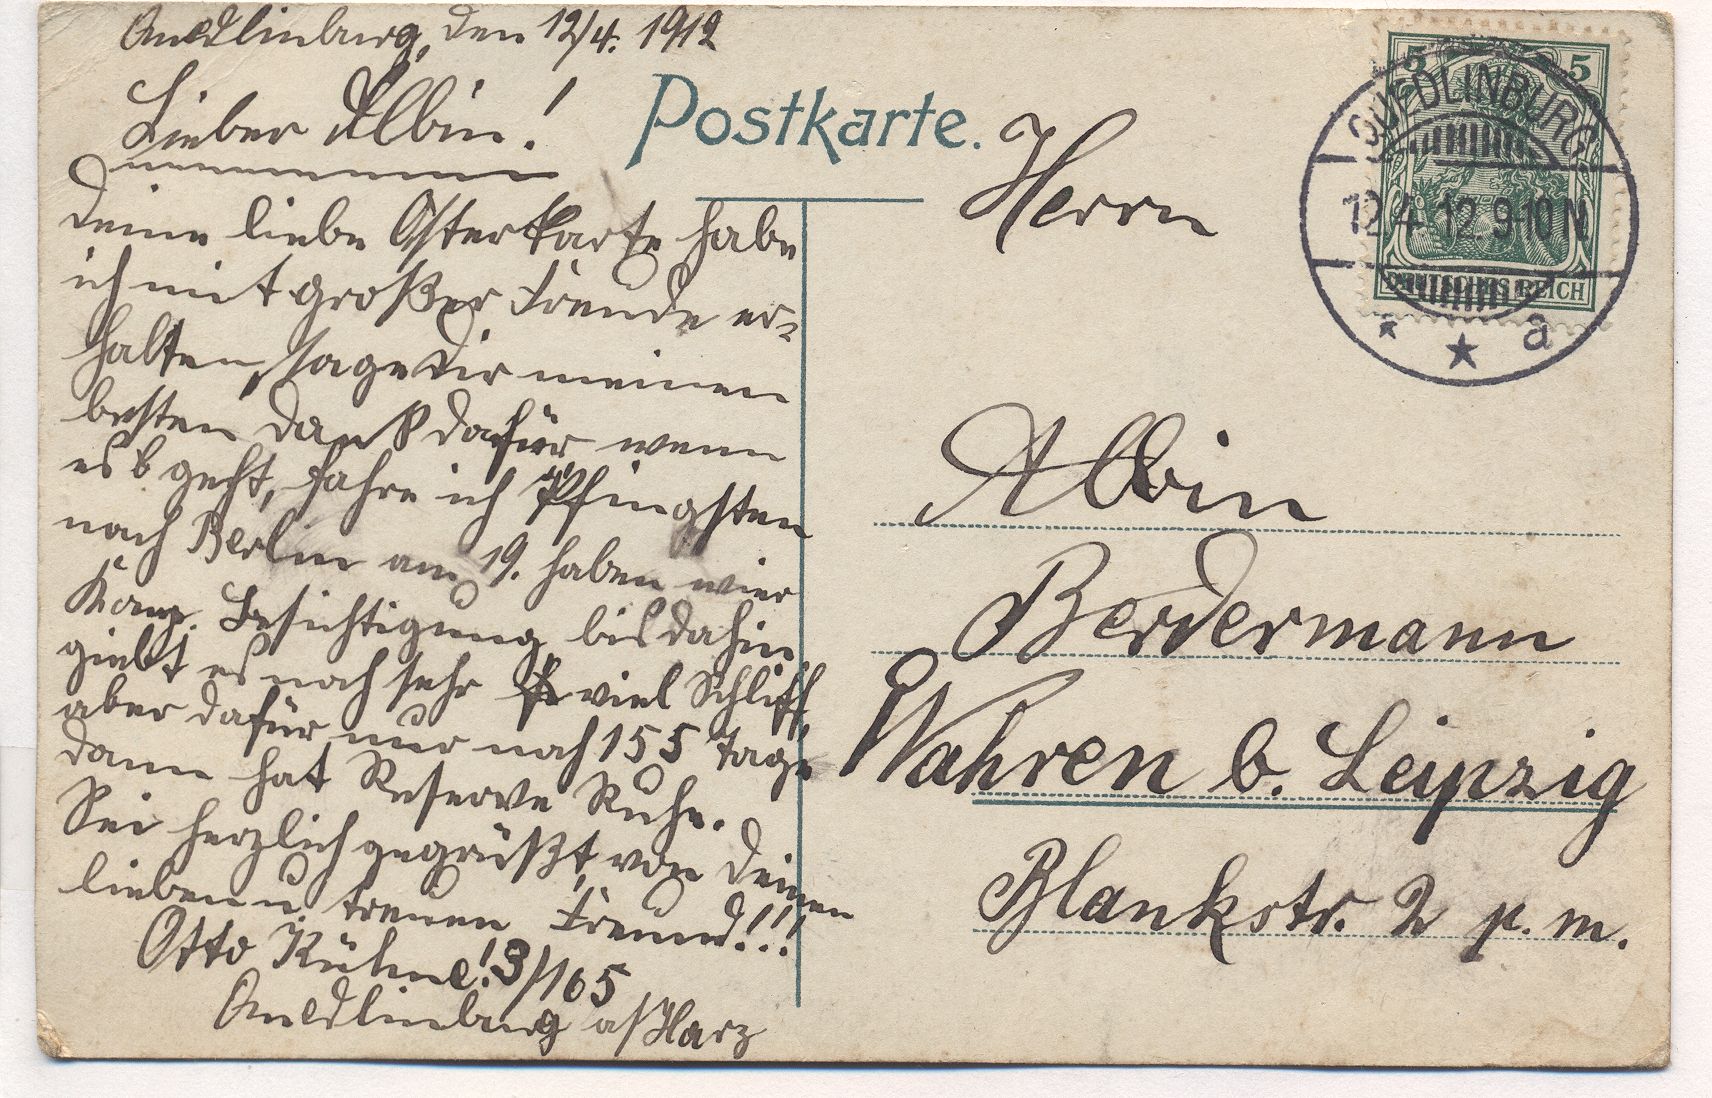 Quedlinburg, den 12/4. 1912
Lieber Albin!
Deine liebe Osterkarte habe
ich mit großer Freude er=
halten, sage Dir meinen
besten Dank dafür wenn
es geht, fahre ich Pfingsten
nach Berlin am 19. haben wier
Komp. Besichtigung bis dahin
giebt es noch sehr viel Schliff,
aber dafür nur noch 155 Tage
dann hat Reserve Ruhe.
Sei herzlich gegrüßt von Deinen
lieben u. treuen Freund!!!
Otto Kühne! 3/165
Quedlinburg a/Harz
Postkarte.
Herrn
Albin
Berdermann
Wahren b. Leipzig
Blankstr. 2 p. m.
5 5
DEUTSCHES REICH
QUEDLINBURG
12.4.12.9-10N
* ★ a